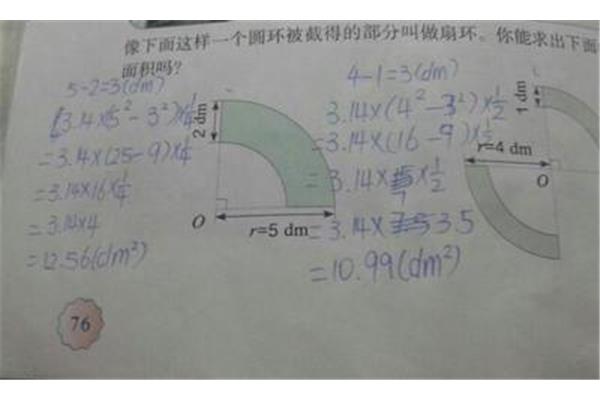 像下面这样一个圆环被截得的部分叫做扇环。你能求出下面
面积吗？
5-2=3(dm)
[3.14×(5²-3²)×1/4
=3.4×(25-9)×1/4
=3.14×16×1/4
=3.14×4
=12.56(dm²)
2 dm
O
r=5 dm
4-1=3(dm)
3.14×(4²-3²)×1/2
=3.14×(16-9)×1/2
=3.14×7×1/2
=3.14×3.5
=10.99(dm²)
1 dm
r=4 dm
O
76